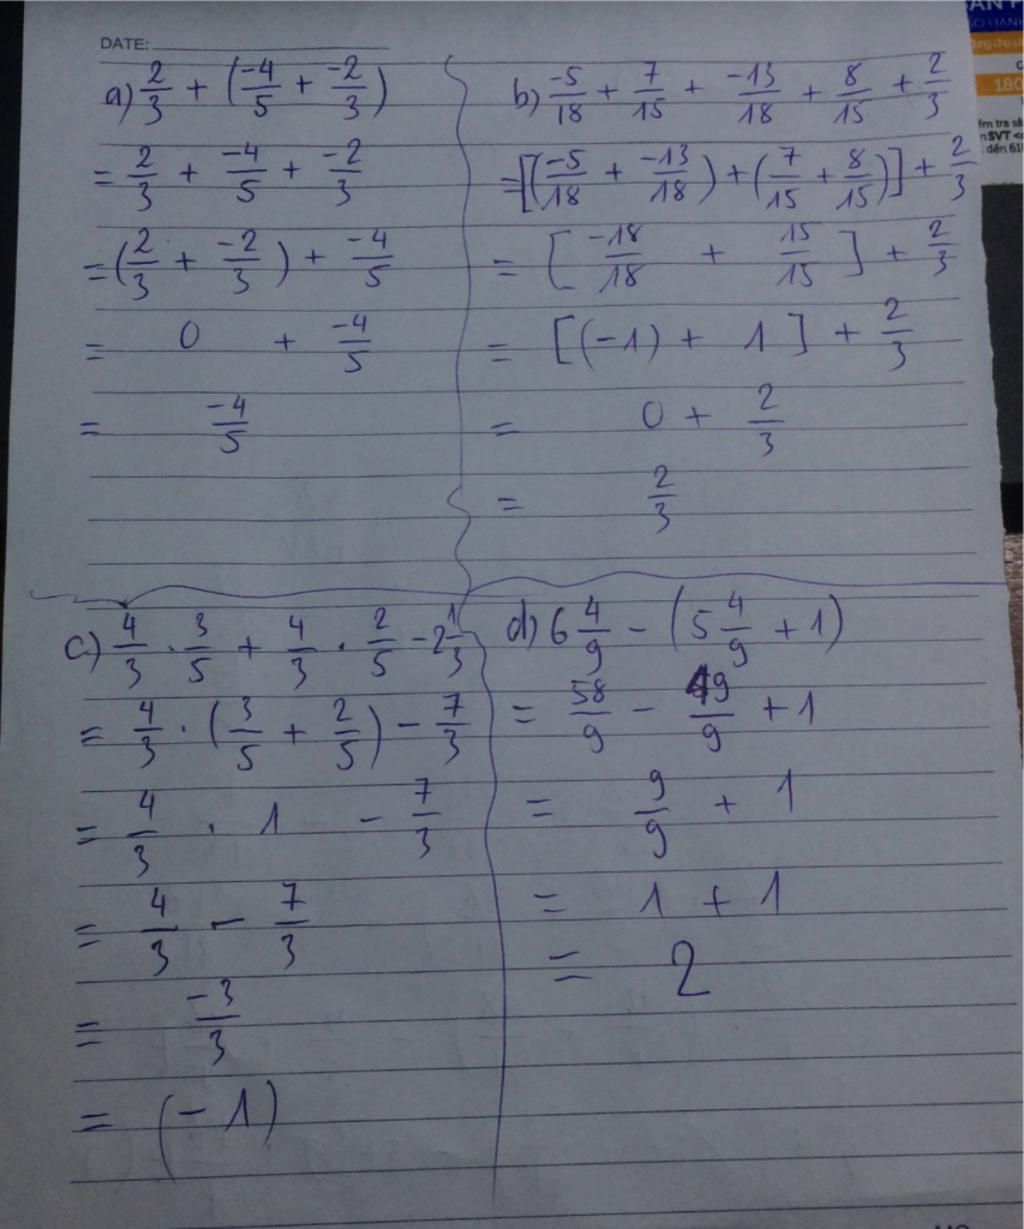 DATE:
a) 2/3 + (-4/5 + -2/3)
= 2/3 + -4/5 + -2/3
= (2/3 + -2/3) + -4/5
= 0 + -4/5
= -4/5
b) -5/18 + 7/15 + -13/18 + 8/15 + 2/3
= [(-5/18 + -13/18) + (7/15 + 8/15)] + 2/3
= [-18/18 + 15/15] + 2/3
= [(-1) + 1] + 2/3
= 0 + 2/3
= 2/3
c) 4/3 . 3/5 + 4/3 . 2/5 - 2 1/3
= 4/3 . (3/5 + 2/5) - 7/3
= 4/3 . 1 - 7/3
= 4/3 - 7/3
= -3/3
= (-1)
d) 6 4/9 - (5 4/9 + 1)
= 58/9 - 49/9 + 1
= 9/9 + 1
= 1 + 1
= 2
180